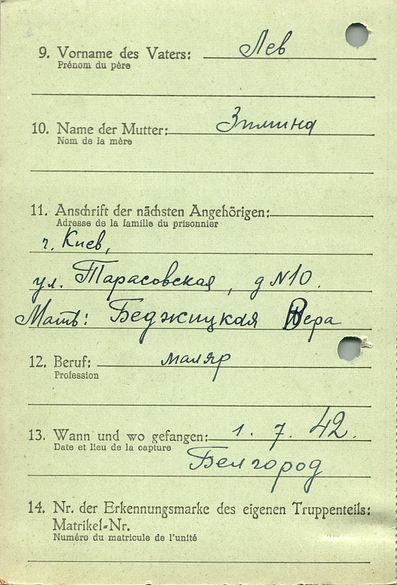 9. Vorname des Vaters: Лев
Prénom du père
10. Name der Mutter: Зимина
Nom de la mère
11. Anschrift der nächsten Angehörigen:
Adresse de la famille du prisonnier
г. Киев,
ул. Тарасовская, д N10.
Мать: Беджицкая Вера
12. Beruf: маляр
Profession
13. Wann und wo gefangen: 1. 7. 42.
Date et lieu de la capture
Белгород
14. Nr. der Erkennungsmarke des eigenen Truppenteils:
Matrikel-Nr.
Numéro du matricule de l'unité